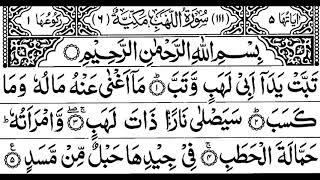 اٰيَاتُهَا ٥ (١١١) سُوْرَةُ اللَّهَبِ مَكِّيَّةٌ (٦) رُكُوْعُهَا ١
بِسْمِ اللّٰهِ الرَّحْمٰنِ الرَّحِيْمِ
تَبَّتْ يَدَاۤ اَبِىْ لَهَبٍ وَّتَبَّ ۝١ مَاۤ اَغْنٰى عَنْهُ مَالُهٗ وَمَا
كَسَبَ ۝٢ سَيَصْلٰى نَارًا ذَاتَ لَهَبٍ ۝٣ وَّامْرَاَتُهٗ ط
حَمَّالَةَ الْحَطَبِ ۝٤ فِىْ جِيْدِهَا حَبْلٌ مِّنْ مَّسَدٍ ۝٥